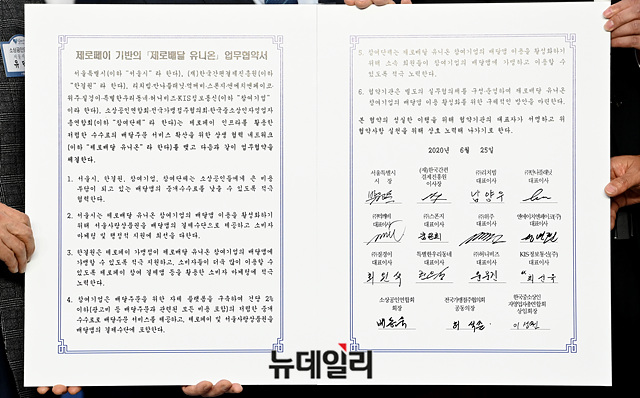 제로페이 기반의 「제로배달 유니온」 업무협약서
서울특별시(이하 "서울시" 라 한다), (재)한국간편결제진흥원(이하
"한결원" 라 한다),
라 한다), 소상공인연합회·전국가맹점주협의회·한국중소상인자영업자
총연합회(이하 "참여단체" 라 한다)는 제로페이 인프라를 활용한
저렴한 수수료의 배달주문 서비스 확산을 위한 상생 협력 네트워크
(이하 "제로배달 유니온" 라 한다)를 맺고 다음과 같이 업무협약을
체결한다.
1. 서울시, 한결원, 참여기업, 참여단체는 소상공인들에게 큰 비용
부담이 되고 있는 배달앱의 중개수수료를 낮출 수 있도록 적극
협력한다.
2. 서울시는 제로배달 유니온 참여기업의 배달앱 이용을 활성화하기
위해 서울사랑상품권을 배달앱의 결제수단으로 제공하고 소비자
마케팅 및 행정적 지원에 최선을 다한다.
3. 한결원은 제로페이 가맹점이 제로배달 유니온 참여기업의 배달앱에
가맹할 수 있도록 적극 지원하고, 소비자들이 더욱 많이 이용할 수
있도록 제로페이 참여 결제앱 등을 활용한 소비자 마케팅에 적극
노력한다.
4. 참여기업은 배달주문을 위한 자체 플랫폼을 구축하여 건당 2%
이하(광고비 등 배달주문과 관련된 모든 비용 포함)의 저렴한 중개
수수료로 배달주문 서비스를 제공하고, 제로페이 및 서울사랑상품권을
배달앱의 결제수단에 포함한다.
5. 참여단체는 제로배달 유니온 참여기업의 배달앱 이용을 활성화하기
위해 소속 회원들이 참여기업의 배달앱에 가맹하고 이용할 수
있도록 적극 노력한다.
6. 협약기관은 별도의 실무협의체를 구성·운영하여 제로배달 유니온
참여기업의 배달앱 이용 활성화를 위한 구체적인 방안을 마련한다.
본 협약의 성실한 이행을 위해 협약기관의 대표자가 서명하고 위
협약사항 실현을 위해 상호 노력해 나가기로 한다.
2020년 6월 25일
서울특별시 (재)한국간편 ㈜리치빔 ㈜만나플래닛
시 장 결제진흥원 대표이사 대표이사
이사장
남양우
㈜먹깨비 ㈜스폰지 ㈜위주 엔에이치엔페이코㈜
대표이사 대표이사 대표이사 대표이사
㈜질경이 특별한우리동네 ㈜허니비즈 KIS정보통신㈜
대표이사 대표이사 대표이사 대표이사
소상공인연합회 전국가맹점주협의회 한국중소상인
회장 공동의장 자영업자총연합회
상임회장
뉴데일리